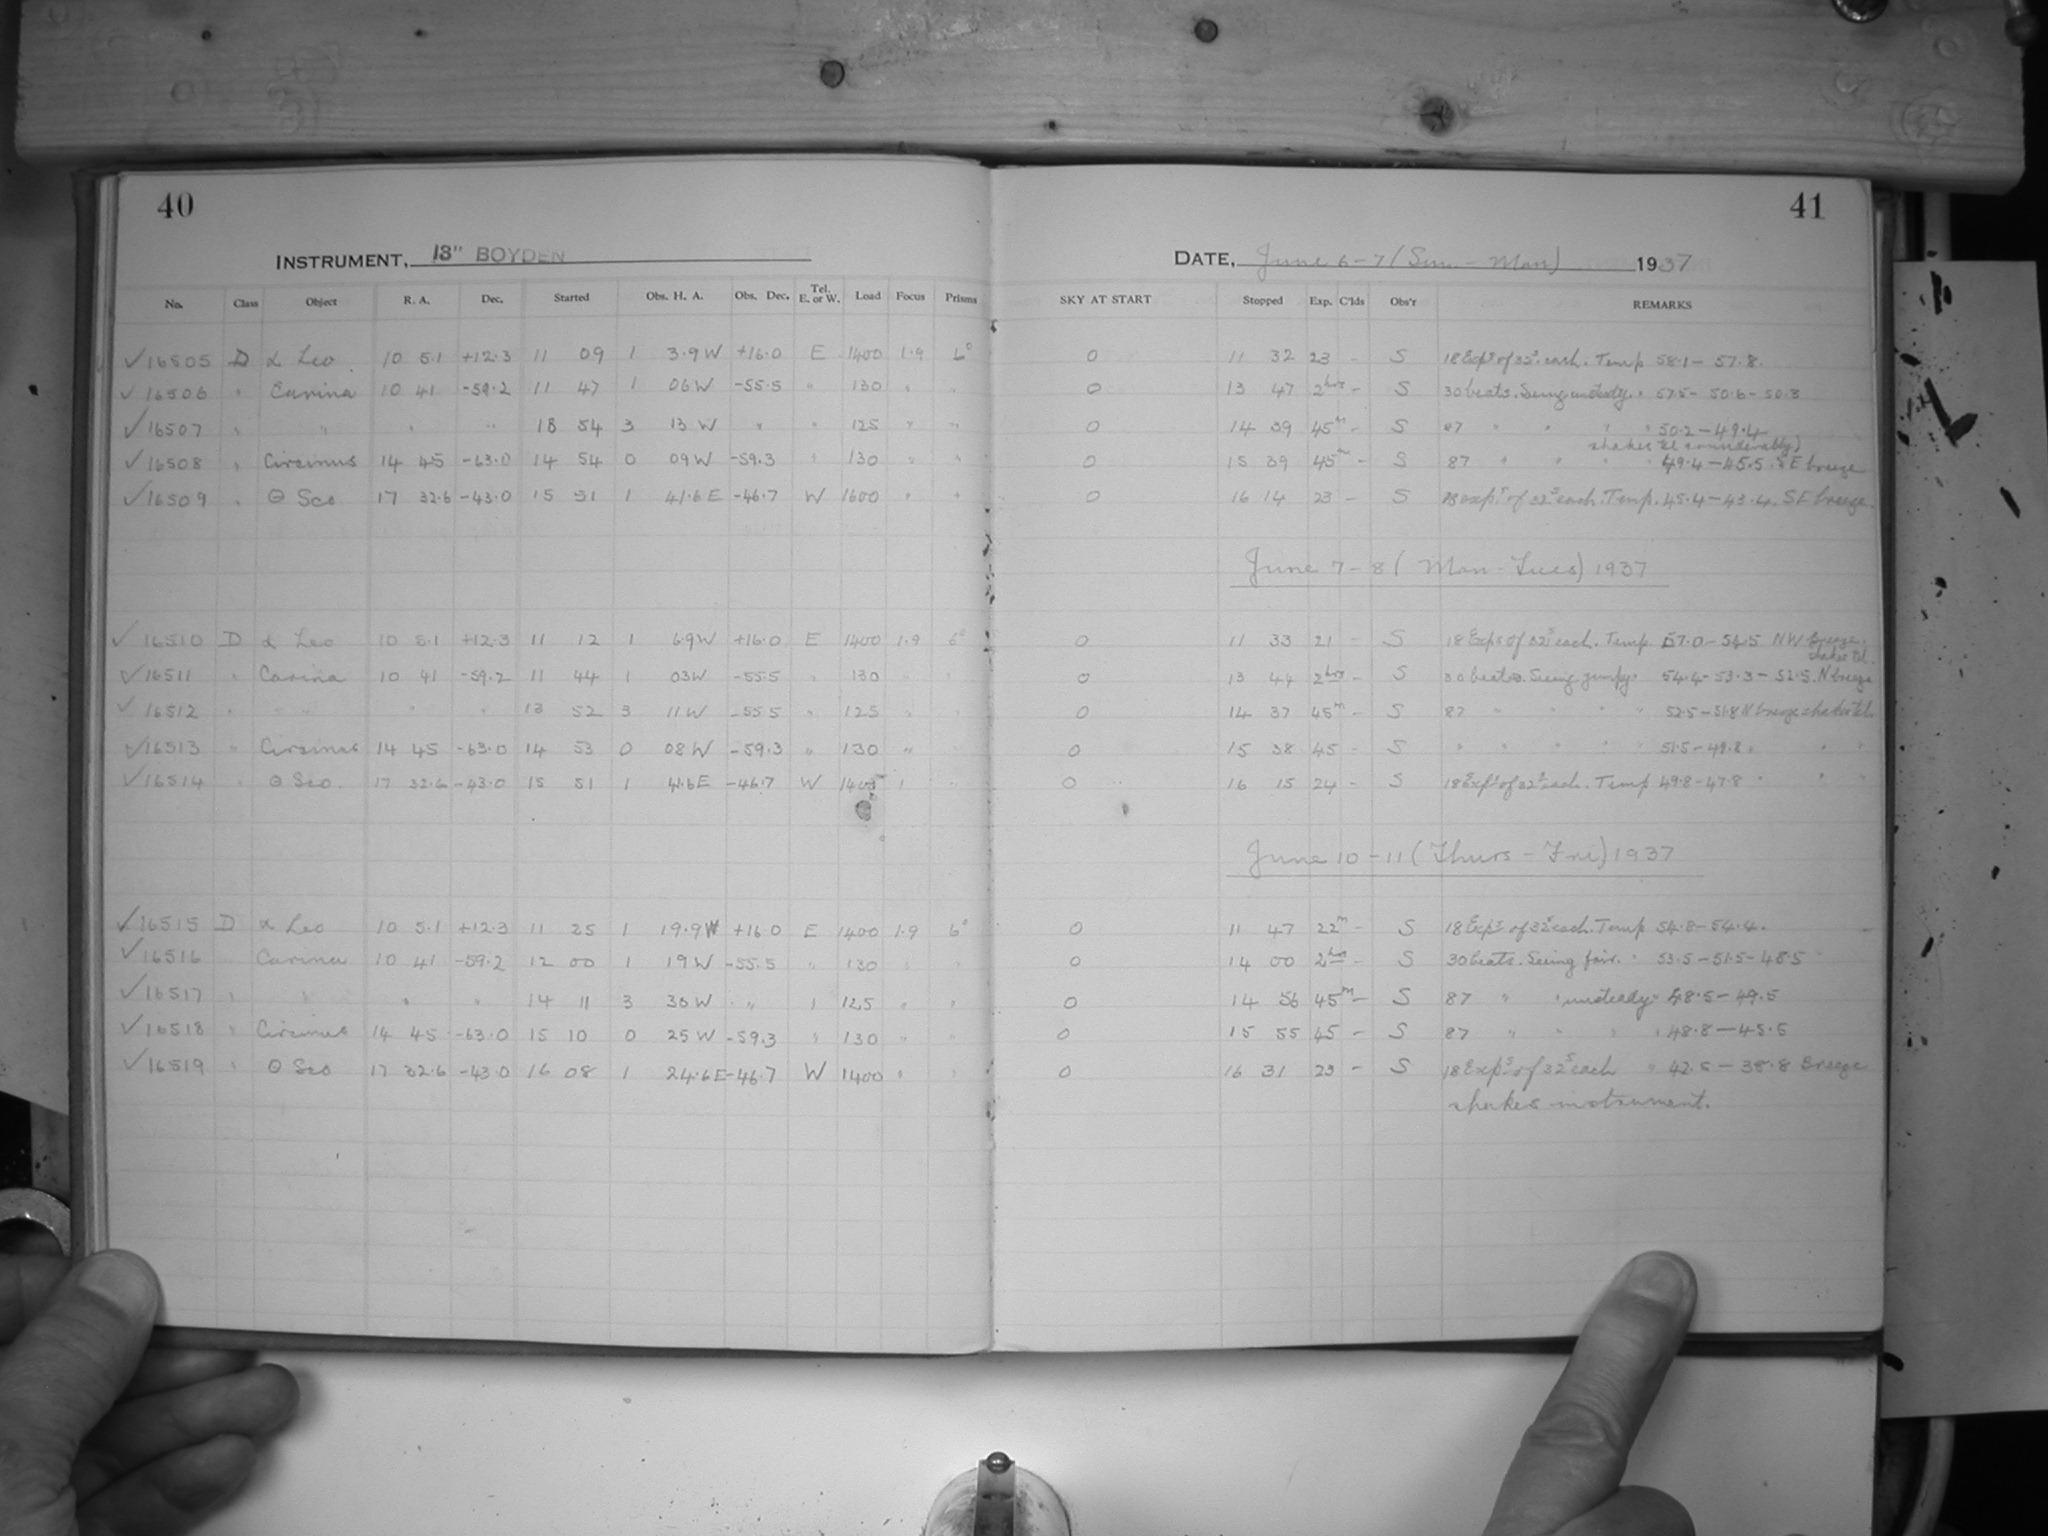 40
41
INSTRUMENT, 13" BOYDEN
DATE, June 6-7 (Sun. - Mon) 1937
No. Class Object R. A. Dec. Started Obs. H. A. Obs. Dec. Tel. E. or W. Load Focus Prisms SKY AT START Stopped Exp. C'lds Obs'r REMARKS
✓16505 D α Leo 10 5.1 +12.3 11 09 1 3.9W +16.0 E 1400 1.9 6° 0 11 32 23 - S 18 Exps of 32s each. Temp 58.1 - 57.8.
✓16506 " Carina 10 41 -59.2 11 47 1 06W -55.5 " 130 " " 0 13 47 2hrs - S 30 beats. Seeing unsteady. " 57.5 - 50.6 - 50.3
✓16507 " " " " 13 54 3 13W " " 125 " " 0 14 39 45m - S 87 " " " " 50.2 - 49.4
shakes tel considerably)
✓16508 " Circinus 14 45 -63.0 14 54 0 09W -59.3 " 130 " " 0 15 39 45m - S 87 " " " " 49.4 - 45.5. SE breeze
✓16509 " θ Sco 17 32.6 -43.0 15 51 1 41.6E -46.7 W 1600 " " 0 16 14 23 - S 18 exps of 32s each. Temp. 45.4 - 43.4. SE breeze.
June 7-8 (Mon - Tues) 1937
✓16510 D α Leo 10 5.1 +12.3 11 12 1 6.9W +16.0 E 1400 1.9 6° 0 11 33 21 - S 18 Exps of 32s each. Temp. 57.0 - 54.5 NW breeze.
shakes tel.
✓16511 " Carina 10 41 -59.2 11 44 1 03W -55.5 " 130 " " 0 13 44 2hrs - S 30 beats. Seeing jumpy. 54.4 - 53.3 - 52.5. N breeze
✓16512 " " " " 13 52 3 11W -55.5 " 125 " " 0 14 37 45m - S 87 " " " " 52.5 - 51.8 N breeze shakes tel.
✓16513 " Circinus 14 45 -63.0 14 53 0 08W -59.3 " 130 " 0 15 38 45 - S " " " " " 51.5 - 49.8 " " "
✓16514 " θ Sco. 17 32.6 -43.0 15 51 1 41.6E -46.7 W 1400 " " 0 16 15 24 - S 18 Exps of 32s each. Temp 49.8 - 47.8 " " "
June 10-11 (Thurs - Fri) 1937
✓16515 D α Leo 10 5.1 +12.3 11 25 1 19.9W +16.0 E 1400 1.9 6° 0 11 47 22m - S 18 Exps of 32s each. Temp 54.8 - 54.4.
✓16516 " Carina 10 41 -59.2 12 00 1 19W -55.5 " 130 " " 0 14 00 2hrs - S 30 beats. Seeing fair. " 53.5 - 51.5 - 48.5
✓16517 " " " " 14 11 3 30W " " 125 " " 0 14 56 45m - S 87 " " unsteady " 48.5 - 49.5
✓16518 " Circinus 14 45 -63.0 15 10 0 25W -59.3 " 130 " " 0 15 55 45 - S 87 " " " " 48.8 - 45.5
✓16519 " θ Sco 17 32.6 -43.0 16 08 1 24.6E -46.7 W 1400 " " 0 16 31 23 - S 18 Exps of 32s each " 42.5 - 38.8 Breeze
shakes instrument.